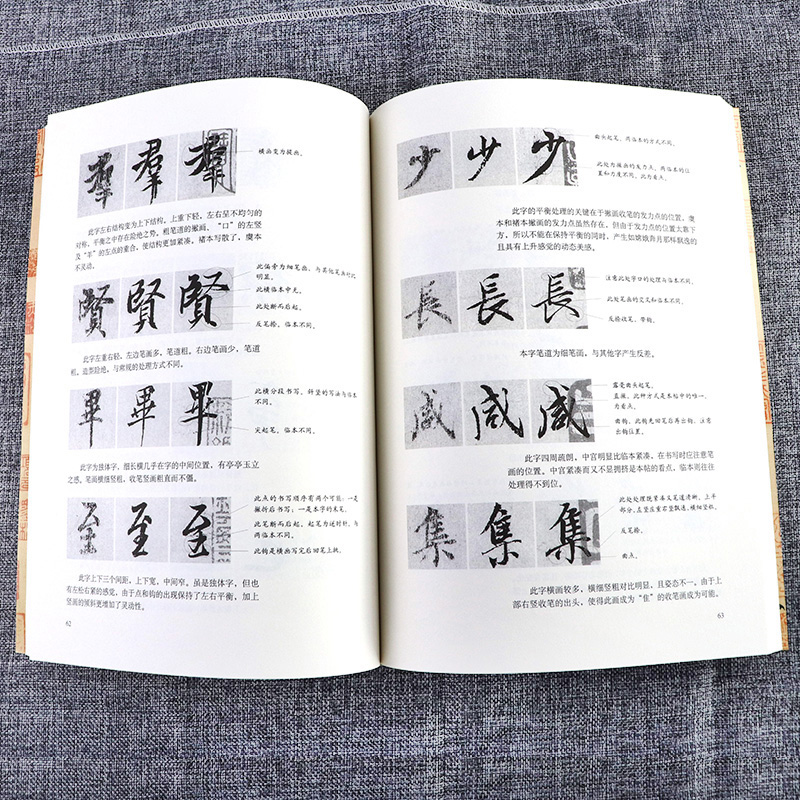 羣 羣 羣
横画变为提画。
此字左右结构变为上下结构，上重下轻，左右呈不均匀的
对称，平衡之中存在险绝之势。粗笔道的撇画、“口”的左竖
及“羊”的左点的重合，使结构更加紧凑。褚本写散了，虞本
不灵动。
賢 賢 賢
此偏旁为细笔画，与其他笔画对比
明显。
此横临本中无。
此处断而后起。
反笔捺，临本不同。
此字左重右轻，左边笔画多，笔道粗。右边笔画少，笔道
粗。造型险绝，与常规的处理方式不同。
畢 畢 畢
此横分段书写，斜竖的写法与临本
不同。
尖起笔，临本不同。
此字为独体字，细长横几乎在字的中间位置，有亭亭玉立
之感。笔画横细竖粗，收笔竖画粗直而不僵。
至 至 至
此点的书写顺序有两个可能：一是
撇折后书写；一是本字的末笔。
此笔断而后起。起笔为逆时针，与
两临本不同。
此钩是横画写完后回笔上挑。
此字上下三个间距，上下宽，中间窄。虽是独体字，但也
有左松右紧的感觉，由于点和钩的出现保持了左右平衡，加上
竖画的倾斜更增加了灵动性。
62
少 少 少
曲头起笔，两临本的方式不同。
此处为撇画的发力点，两临本的位
置和力度不同，此为看点。
此字的平衡处理的关键在于撇画收笔的发力点的位置。虞
本和褚本撇画的发力点虽然存在，但由于发力点的位置太靠下
方，所以不能在保持平衡的同时，产生如嫦娥奔月那样飘逸的
且具有上升感觉的动态美感。
長 長 長
注意此处字口的处理与临本不同。
此处笔画的交叉和临本不同。
反捺收笔，带钩。
本字笔道为细笔画，与其他字产生反差。
咸 咸 咸
露毫曲头起笔。
直撇，此种方式是本帖中的唯一。
为看点。
此钩，此钩先回笔后再出钩，注意
出钩位置。
此字四周疏朗，中宫明显比临本紧凑，在书写时应注意笔
画的位置。中宫紧凑而又不显拥挤是本帖的看点，临本则往往
处理得不到位。
集 集 集
此处处理既紧凑又笔道清晰，上半
部分，左竖庄重右竖飘逸，横细竖粗。
反笔捺。
曲点。
此字横画较多，横细竖粗对比明显，且姿态不一，由于上
部右竖收笔的出头，使得此画成为“隹”的收笔画成为可能。
63